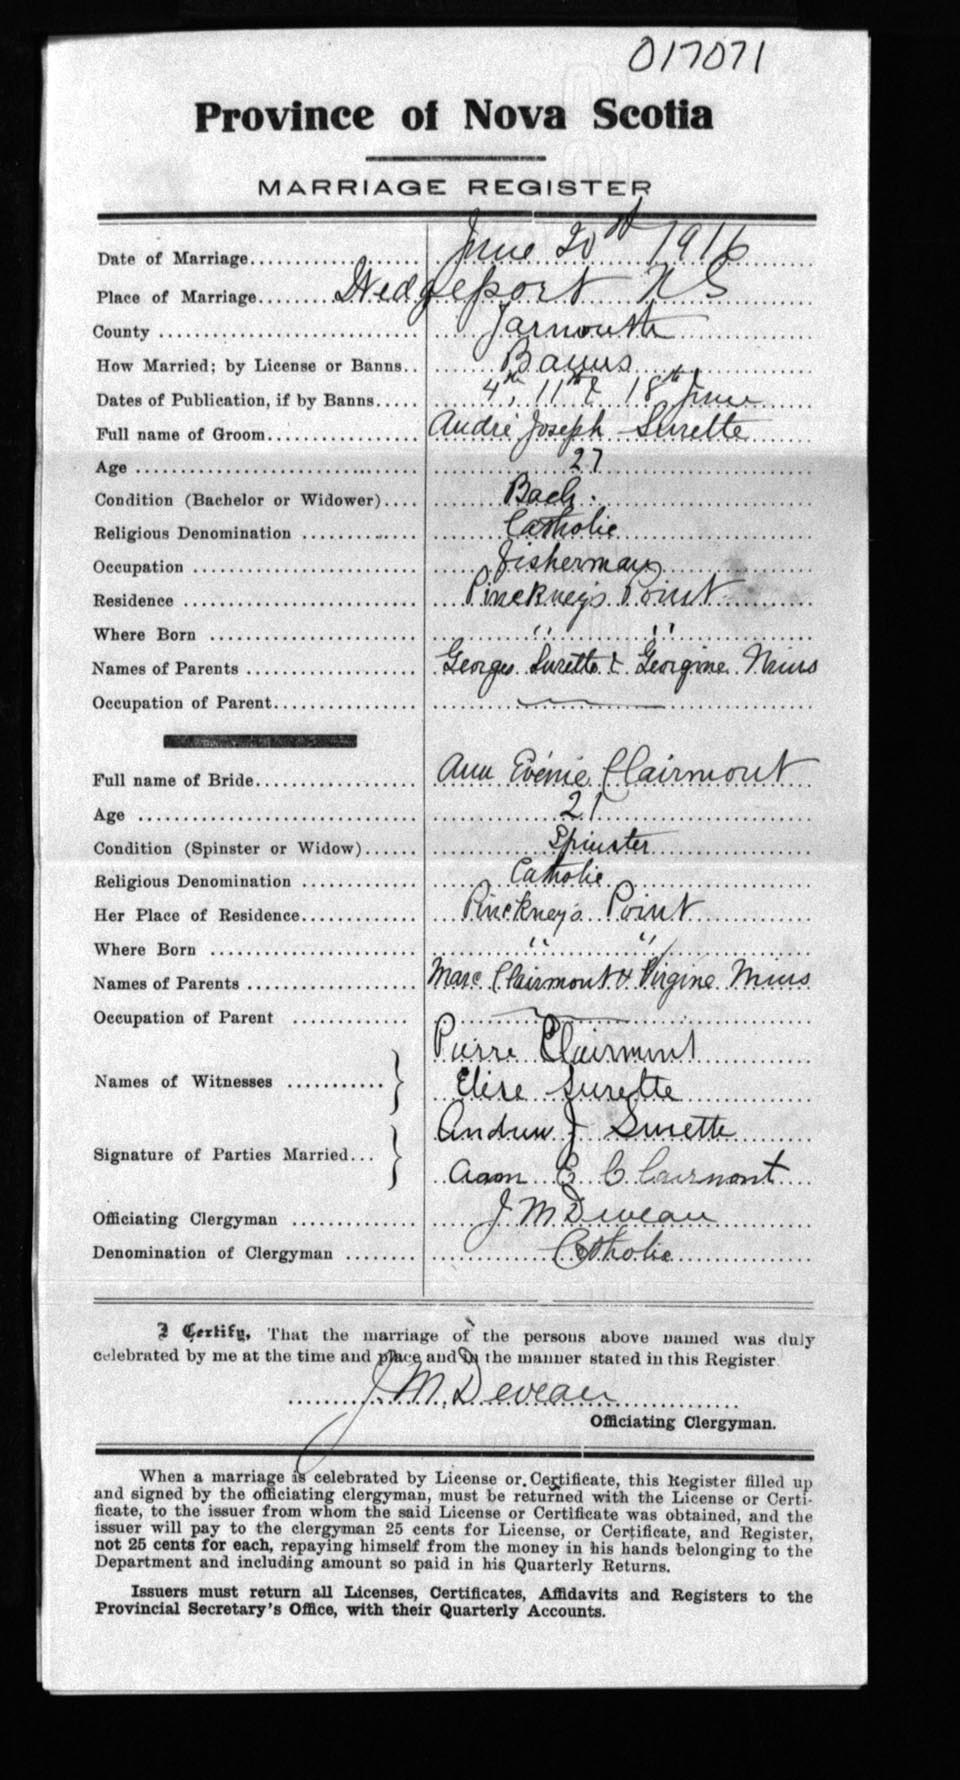 017071
Province of Nova Scotia
MARRIAGE REGISTER
Date of Marriage.................... June 20th 1916
Place of Marriage........ Wedgeport N S
County ........................... Yarmouth
How Married; by License or Banns.. Banns
Dates of Publication, if by Banns..... 4th, 11th & 18th June
Full name of Groom................ André Joseph Surette
Age ............................... 27
Condition (Bachelor or Widower).... Bach.
Religious Denomination ............ Catholic
Occupation ........................ Fisherman
Residence ......................... Pinckney's Point
Where Born ...................... " "
Names of Parents .................. Georges Surette & Georgine Mius
Occupation of Parent................
Full name of Bride.................. Ann Evénie Clairmont
Age ............................... 21
Condition (Spinster or Widow)...... Spinster
Religious Denomination ............ Catholic
Her Place of Residence............. Pinckney's Point
Where Born ...................... " "
Names of Parents .................. Marc Clairmont & Virgine Mius
Occupation of Parent ............
Pierre Clairmont
Names of Witnesses ...........}
Elise Surette
Andrew J Surette
Signature of Parties Married...}
Ann E Clairmont
Officiating Clergyman ............. J M Deveau
Denomination of Clergyman ........ Catholic
I Certify, That the marriage of the persons above named was duly
celebrated by me at the time and place and in the manner stated in this Register
J. M. Deveau
Officiating Clergyman.
When a marriage is celebrated by License or Certificate, this Register filled up
and signed by the officiating clergyman, must be returned with the License or Certi-
ficate, to the issuer from whom the said License or Certificate was obtained, and the
issuer will pay to the clergyman 25 cents for License, or Certificate, and Register,
not 25 cents for each, repaying himself from the money in his hands belonging to the
Department and including amount so paid in his Quarterly Returns.
Issuers must return all Licenses, Certificates, Affidavits and Registers to the
Provincial Secretary's Office, with their Quarterly Accounts.